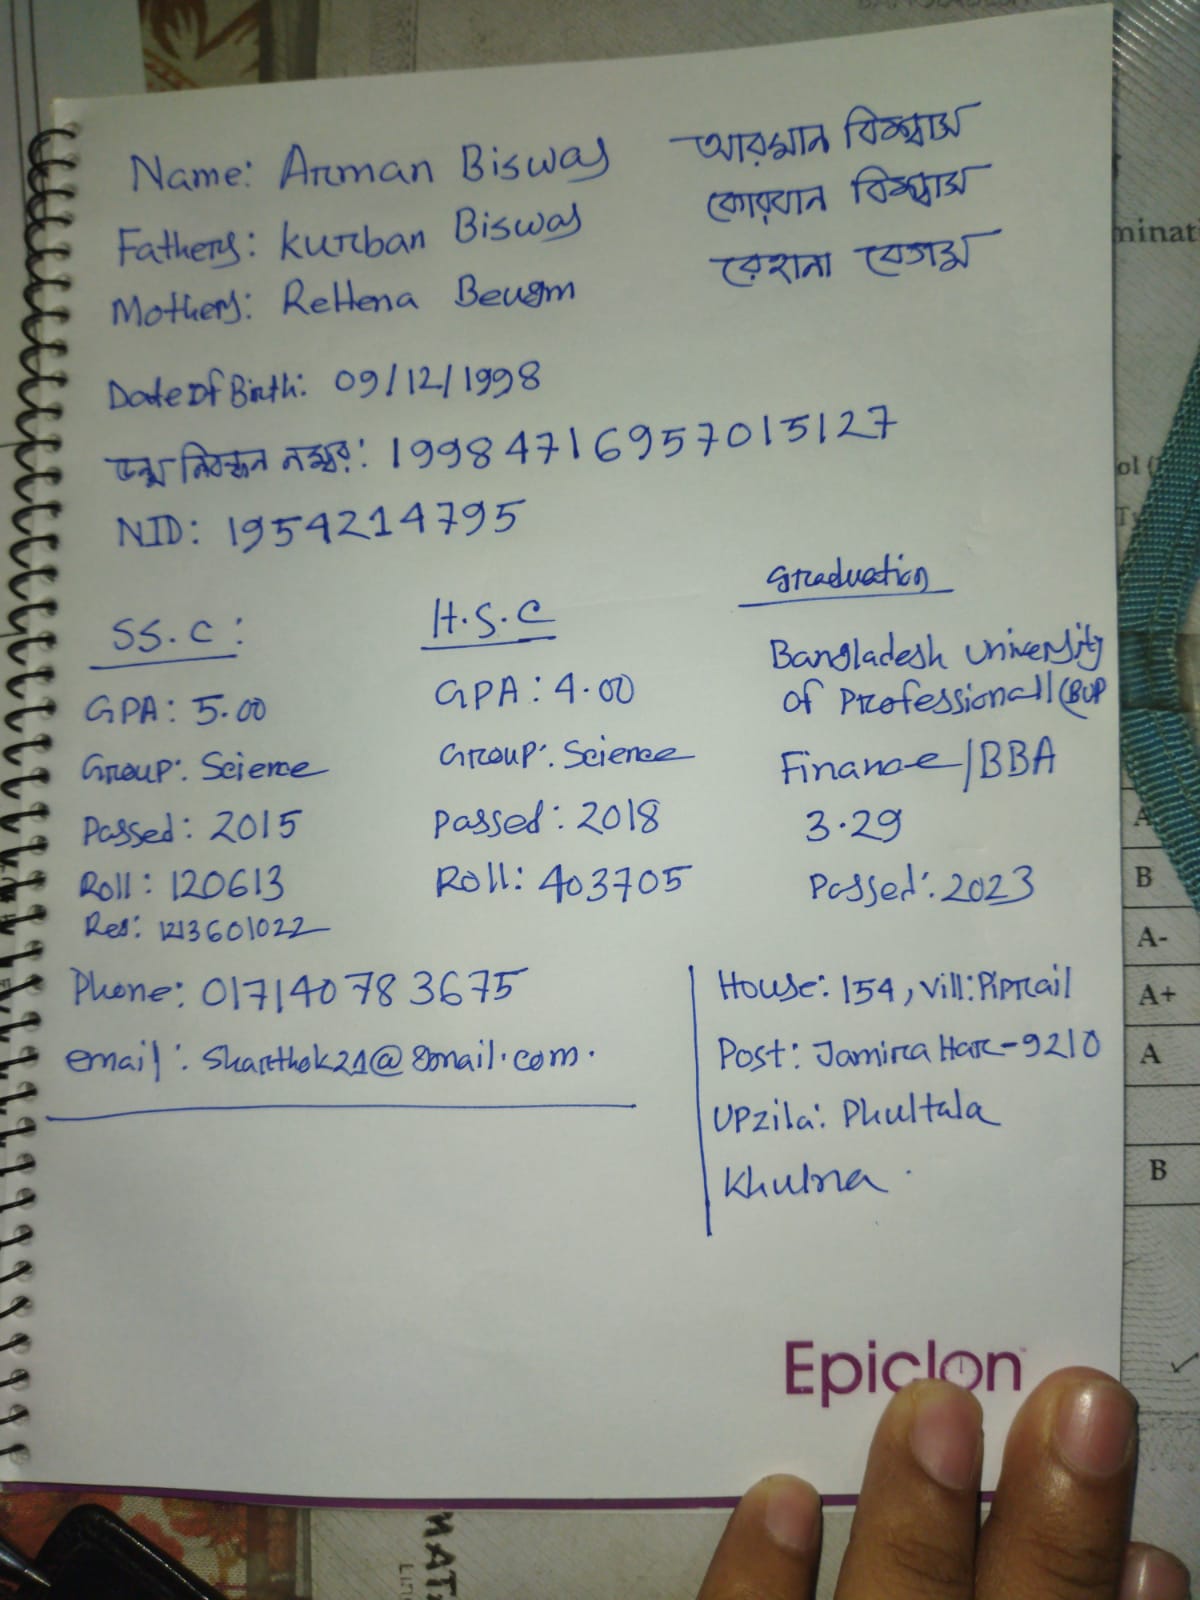 Name: Arman Biswas আরমান বিশ্বাস
Fathers: Kurban Biswas কোরবান বিশ্বাস
Mothers: ReHena Beugm রেহানা বেগম
Date Of Birth: 09/12/1998
জন্ম নিবন্ধন নম্বর: 19984716957015127
NID: 1954214795
SS.C:
GPA: 5.00
Group: Science
Passed: 2015
Roll: 120613
Reg: 1213601022
H.S.C
GPA: 4.00
Group: Science
Passed: 2018
Roll: 403705
Graduation
Bangladesh University
of Professional (BUP
Finance/BBA
3.29
Passed: 2023
Phone: 01714078 3675
email: Skarthok21@gmail.com.
House: 154, Vill: Piprail
Post: Jamira Hat-9210
UPzila: Phultala
Khulna
Epiclon
minat
ol (
A
B
A-
A+
A
B
MAT